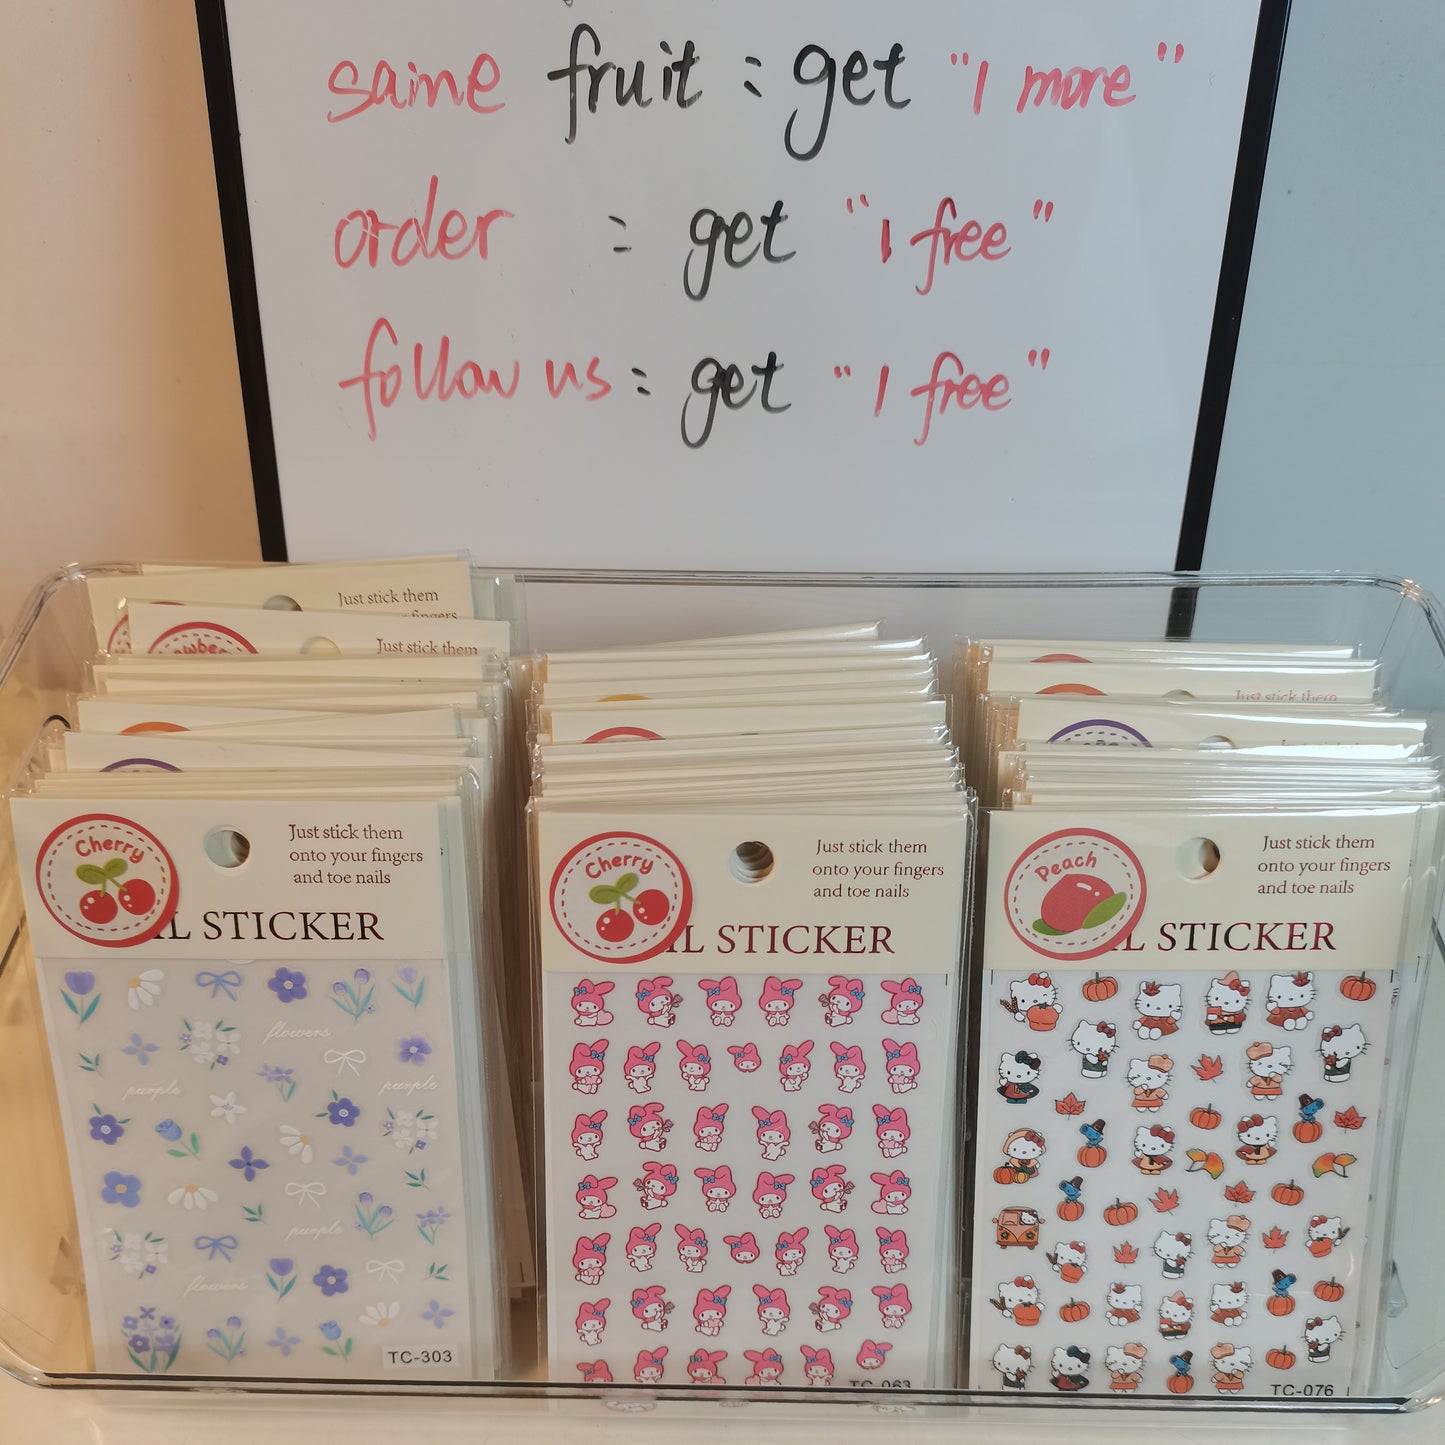 same fruit : get "1 more"
order = get "1 free"
follow us : get "1 free"
Just stick them
fingers
Just stick them
Just stick them
Cherry
Just stick them
onto your fingers
and toe nails
IL STICKER
flowers
purple
purple
purple
flowers
TC-303
Cherry
Just stick them
onto your fingers
and toe nails
IL STICKER
TC-063
Peach
Just stick them
onto your fingers
and toe nails
IL STICKER
TC-076